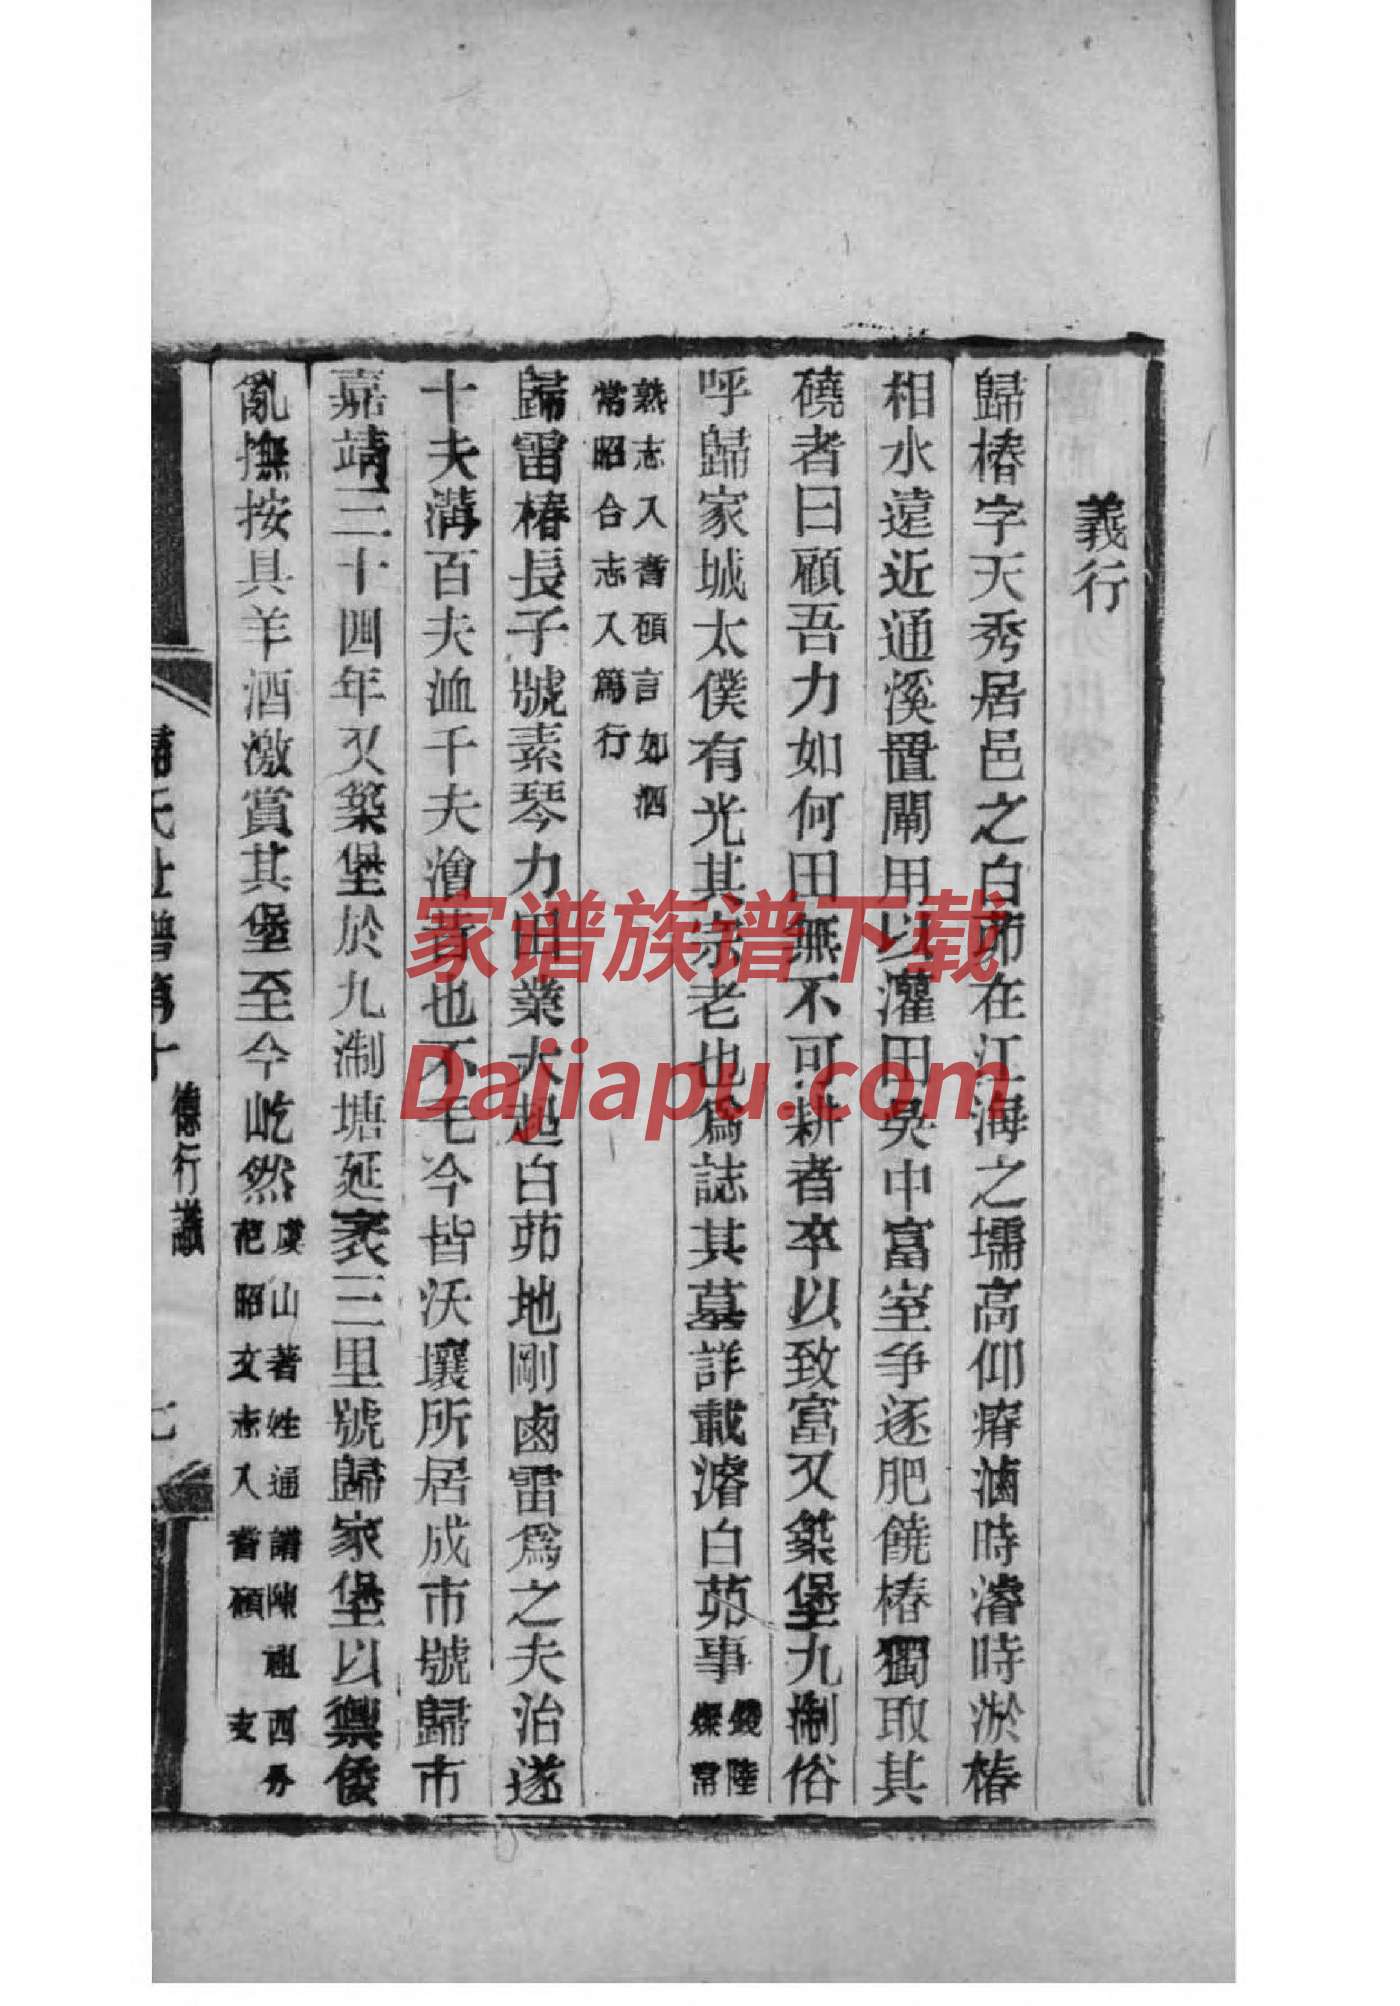 義行
歸椿字天秀居邑之白茆在江海之壖高仰瘠滷時濬時淤椿
相水遠近通溪置閘用以灌田吳中富室争逐肥饒椿獨取其
磽者曰顧吾力如何田無不可耕者卒以致富又築堡九浙俗
呼歸家城太僕有光其宗老也爲誌其墓詳載濬白茆事
錢陸
燦常
熟志入耆碩言如泗
常昭合志入篤行
歸雷椿長子號素琴力田業大起白茆地剛鹵雷爲之夫治遂
十夫溝百夫洫千夫澮昔也不毛今皆沃壤所居成市號歸市
嘉靖三十四年又築堡於九浙塘延袤三里號歸家堡以禦倭
亂撫按具羊酒激賞其堡至今屹然
虞山著姓通譜陳祖
昭文志入耆碩
歸氏世譜第十
德行議
七
家谱族谱下载
Dajiapu.com